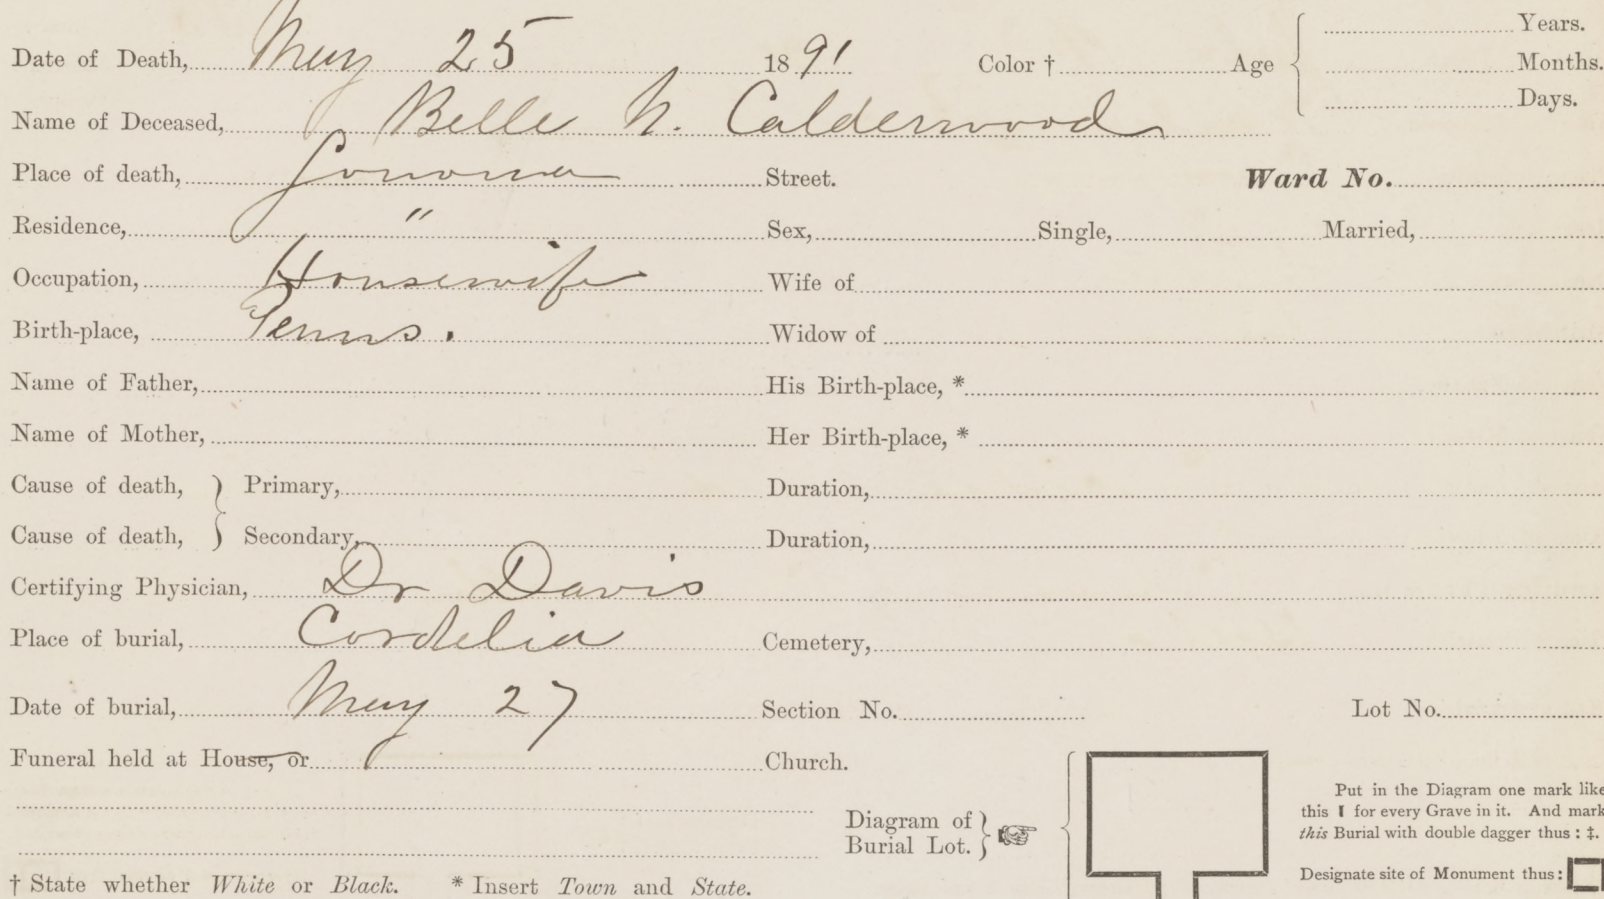 Date of Death, May 25 1891 Color † Age Years.
Months.
Days.
Name of Deceased, Belle N. Calderwood
Place of death, Sonoma Street. Ward No.
Residence, " Sex, Single, Married,
Occupation, Housewife Wife of
Birth-place, Penns. Widow of
Name of Father, His Birth-place, *
Name of Mother, Her Birth-place, *
Cause of death, Primary, Duration,
Cause of death, Secondary, Duration,
Certifying Physician, Dr Davis
Place of burial, Cordelia Cemetery,
Date of burial, May 27 Section No. Lot No.
Funeral held at House, or Church.
Diagram of
Burial Lot.
Put in the Diagram one mark like
this ❙ for every Grave in it. And mark
this Burial with double dagger thus : ‡.
Designate site of Monument thus :
† State whether White or Black. * Insert Town and State.